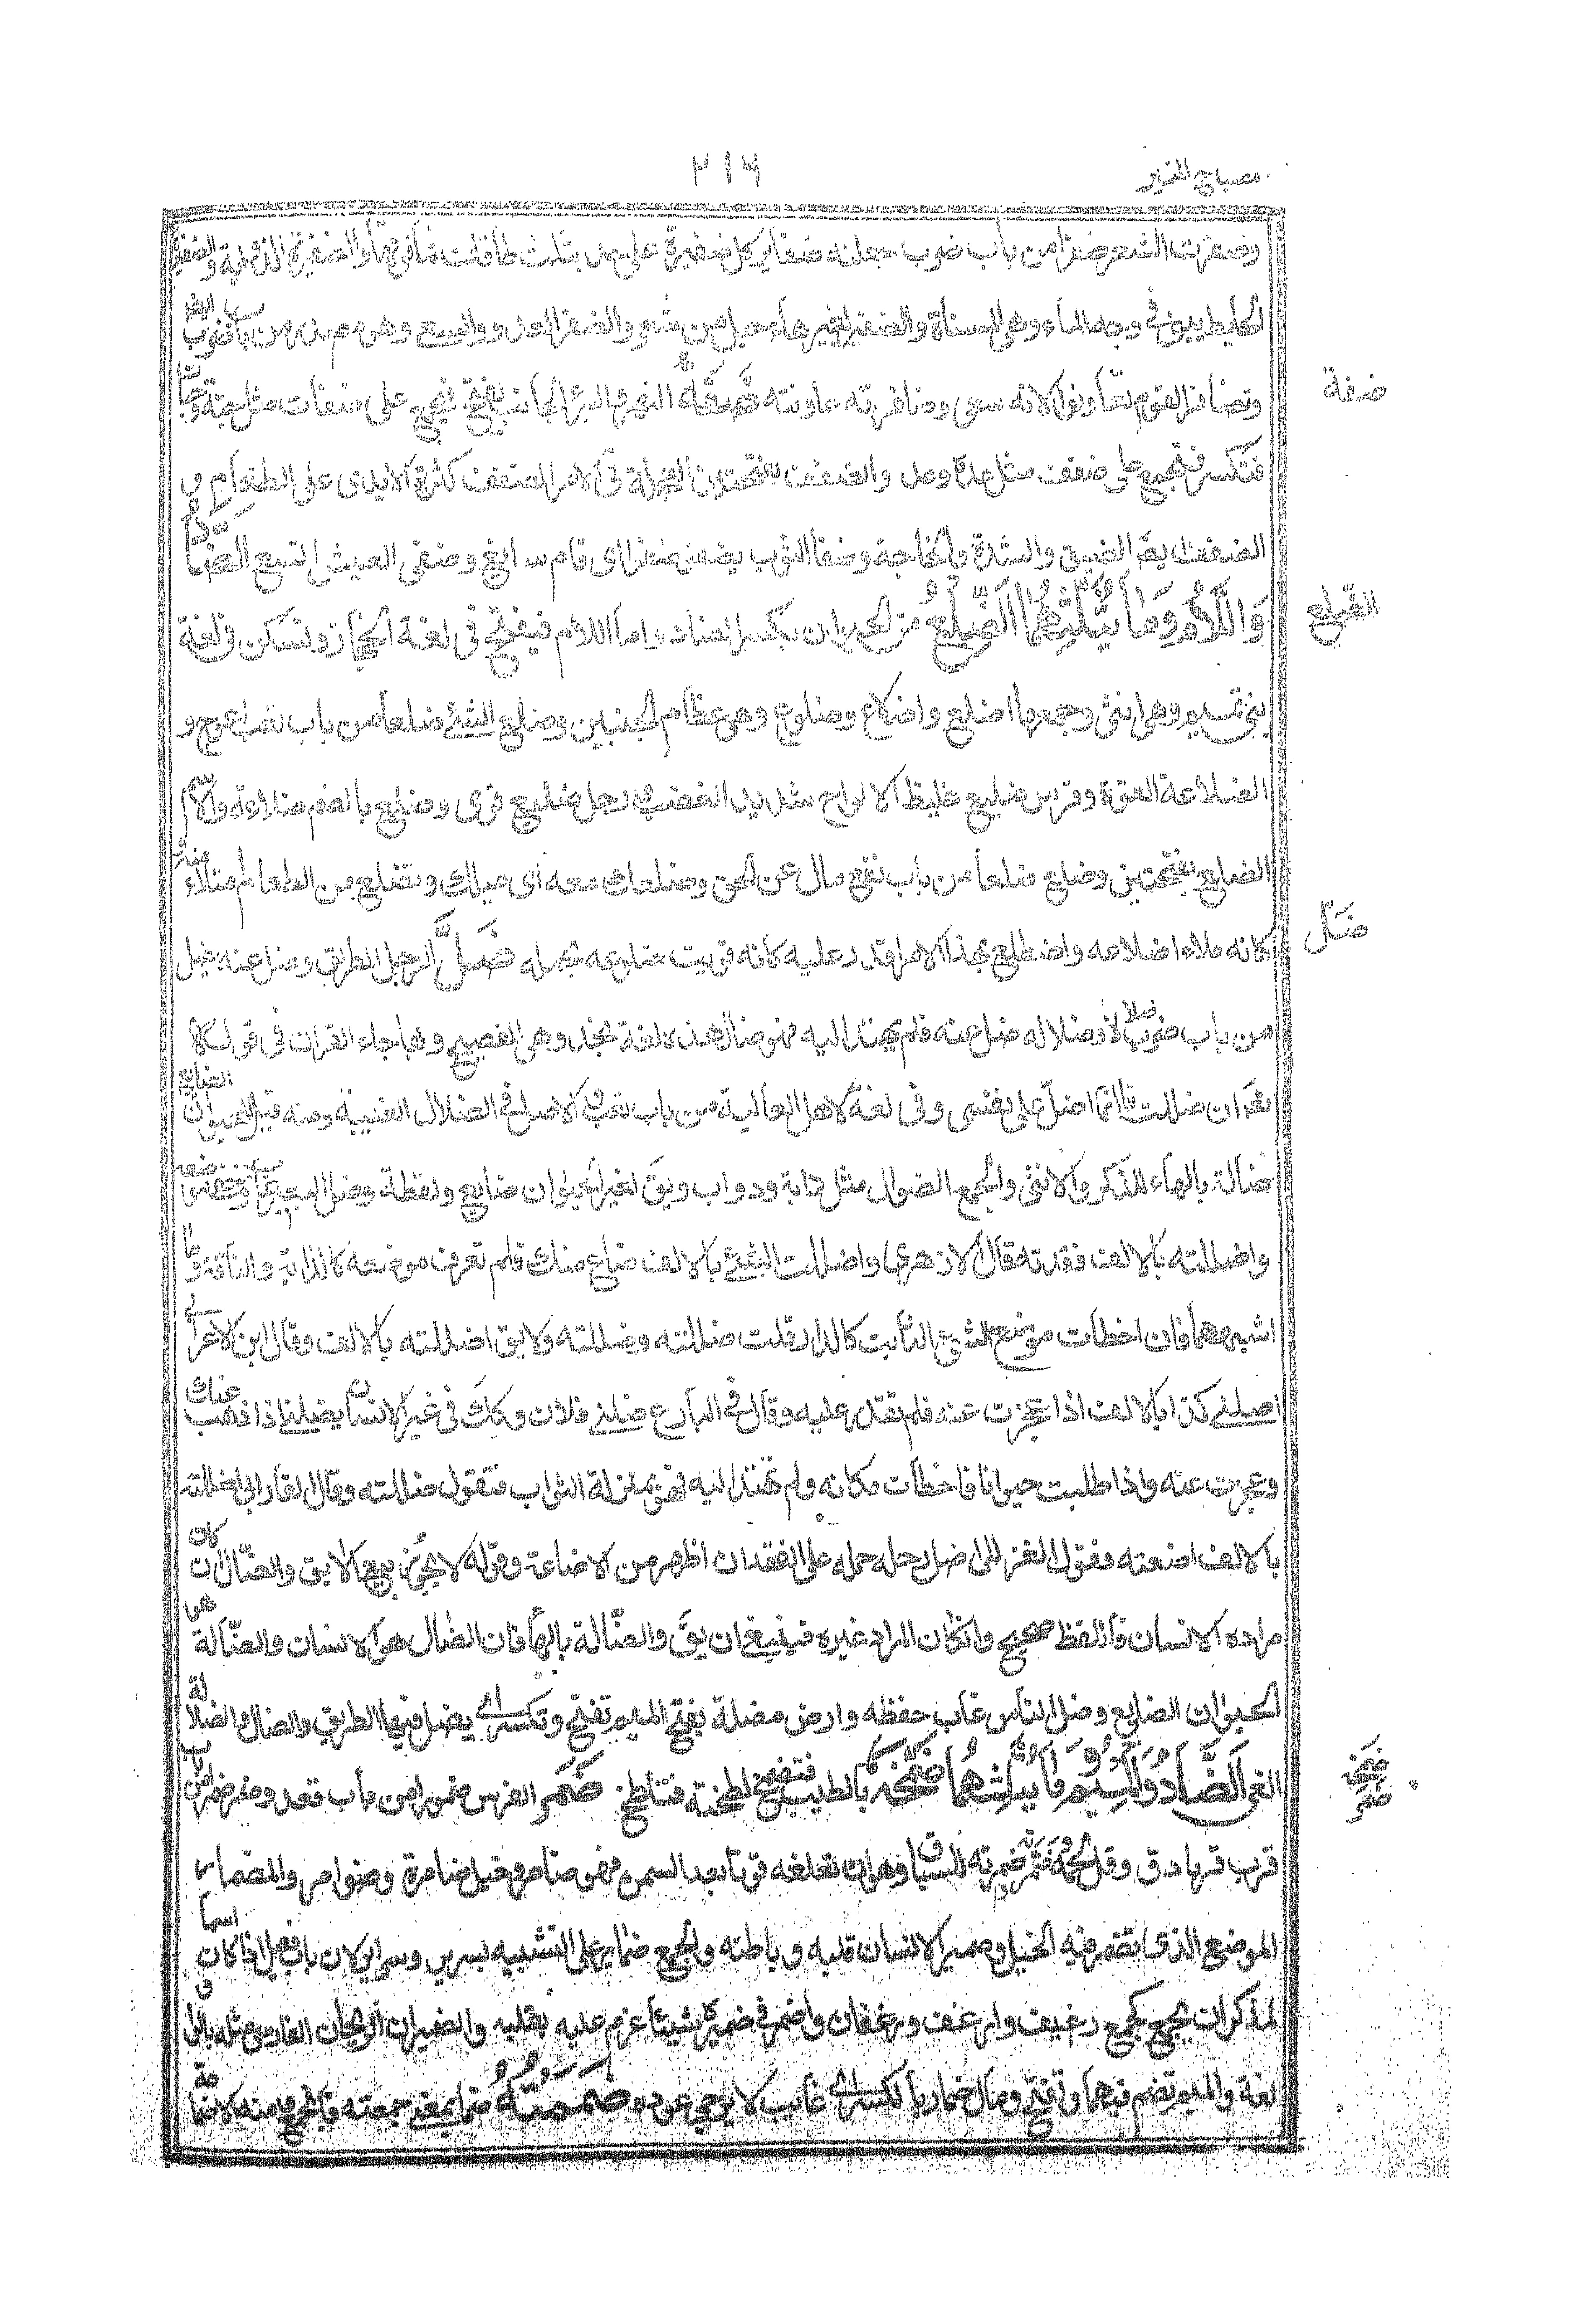 مصباح المنير
٣١٦
وضفرت الشعر ضفرا من باب ضرب جعلته ضفاير كل ضفيرة على حدة بثلث طاقات فما فوقها والضفيرة الذؤابة والضفيرة
الحايط يبنى فى وجه الماء وهى المسناة والضفير بغيرهاء حبل من شعر والضفر العدو والسعى وهو مصدر من باب ضرب ايضا
وتضافر القوم تعاونوا لانه سعى وضافرته عاونته ضفة النهر والبئر الجانب بفتح فيجمع على ضفات مثل جنة وجنات
ضفة
فتكسر فيجمع على ضفف مثل عدة وعدد والضفف بفتحتين العجلة فى الامر الضفف كثرة الايدى على الطعام و
الضفف ايضا الضيق والشدة والحاجة وضفا الثوب يضفو ضفوا اى تام سابغ وضفى العيش اتسع الضاد
واللام وما يثلثهما الضلع من الحيوان بكسر الضاد واما اللام فيفتح فى لغة الحجاز وتسكن فى لغة
الضلع
بنى تميم وهى انثى وجمعها اضلع واضلاع وضلوع وهى عظام الجنبين وضلع الشئ ضلعا من باب تعب اعوج و
الضلاعة القوة وفرس ضليع غليظ الالواح شديد العصب ورجل ضليع قوى وضلع بالضم ضلاعة والاسم
الضلع بفتحتين وضلع ضلعا من باب نفع مال عن الحق وضلعك معه اى ميلك وتضلع من الطعام امتلاء منه
كانه ملاء اضلاعه واضطلع بهذا الامر قدر عليه كانه قويت ضلوعه بحمله ضل الرجل الطريق وضل عنه يضل
ضل
من باب ضرب ضلالا وضلالة ضل عنه فلم يهتد اليه فهو ضال هذه لغة نجد وهى الفصيحى وبها جاء القرآن فى قوله
تعد ان ضللت فانما اضل على نفسى وفى لغة لاهل العالية من باب تعب والاصل فى الضلال الغيبة ومنه قيل للحيوان الضايع
ضالة بالهاء للذكر والانثى والجمع الضوال مثل دابة ودواب ويق لغير الحيوان ضايع ولقطة وضل البعير غاب وخفى موضعه
واضللته بالالف فقدته قال الازهرى واضللت الشئ بالالف ضاع منك فلم تعرف موضعه كالدابة والناقة وما
اشبههما فان اخطات موضع الشئ الثابت كالدار قلت ضللته وضللته ولا يق اضللته بالالف وقال ابن الاعرابى
اضلنى كذا بالالف اذا عجزت عنه فلم تقدر عليه وقال فى البارع ضلنى فلان وكك فى غير الانسان يضلنى اذا ذهب عنك
وعجزت عنه واذا طلبت حيوانا فاخطات مكانه ولم تهتد اليه فهو بمنزلة الثوابت فتقول ضللته وقال الفارابى اضللته
بالالف اضعته وفقول الغزالى اضل رحله حمله على الفقدان اظهر من الاضاعة وقوله لا يجوز بيع الابق والضال ان كان
مراده الانسان فاللفظ صحيح وانكان المراد غيره فينبغى ان يق والضالة بالهاء فان الضال هو الانسان والضالة هى
الحيوان الضايع وضل الناسى غاب حفظه وارض مضلة بفتح الميم وتفتح وتكسر اى يضل فيها الطريق والضال والضلالة
الغى الضاد والميم وما يثلثهما ضمخه بالطيب فتضمخ لطخه فتلطخ ضمر الفرس ضمورا من باب قعد وضمر ضمرا من باب
ضمخه
ضمر
قرب قربا دق وقل لحمه وضمرته للسباق وهو ان تعلفه قوتا بعد السمن فهو ضامر وخيل ضامرة وضوامر والمضمار
الموضع الذى تضمر فيه الخيل وضمير الانسان قلبه وباطنه والجمع ضماير على التشبيه بسريرة وسراير لان باب فعيل اذا كان اسما
لمذكر ان يجمع كجمع رغيف وارغفة ورغفان واضمر فى ضميره شيئا عزم عليه بقلبه والضميران الريحان الفارسى مثله بالواو
لغة والميم تضم فيهما وتفتح ومال ضمار بالكسر اى غايب لا يرجى عوده ضممته ضما بمعنى جمعته فانجمع ومنه الاضمامة